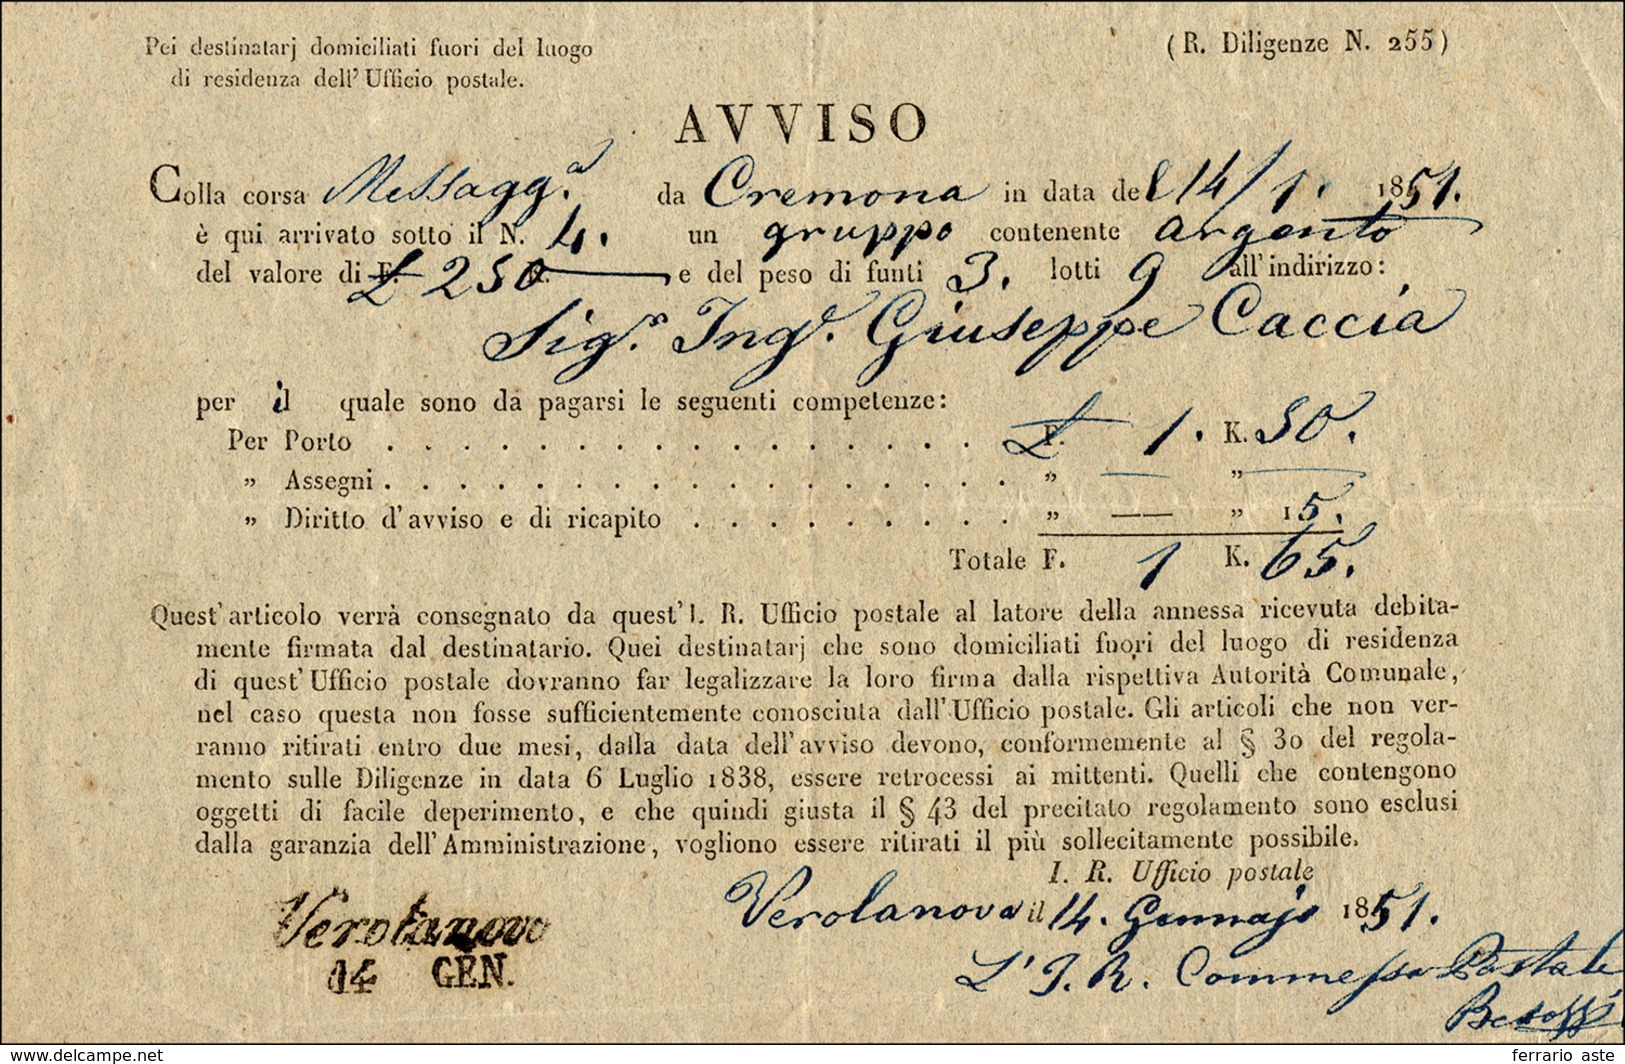 Pei destinatarj domiciliati fuori del luogo
di residenza dell' Ufficio postale.
(R. Diligenze N. 255)
AVVISO
Colla corsa Messagg.a da Cremona in data del 14/1. 1851.
è qui arrivato sotto il N. 4. un gruppo contenente argento
del valore di £ 250 e del peso di funti 3. lotti 9 all' indirizzo:
Sig.r Ing.e Giuseppe Caccia
per il quale sono da pagarsi le seguenti competenze:
Per Porto . . . . . . . . . . . . . . . £ 1. K. 50.
„ Assegni . . . . . . . . . . . . . . . . „ — „ —
„ Diritto d'avviso e di ricapito . . . . . . . . . „ —— „ 15.
Totale F. 1 K. 65.
Quest' articolo verrà consegnato da quest' I. R. Ufficio postale al latore della annessa ricevuta debita-
mente firmata dal destinatario. Quei destinatarj che sono domiciliati fuori del luogo di residenza
di quest' Ufficio postale dovranno far legalizzare la loro firma dalla rispettiva Autorità Comunale,
nel caso questa non fosse sufficientemente conosciuta dall' Ufficio postale. Gli articoli che non ver-
ranno ritirati entro due mesi, dalla data dell' avviso devono, conformemente al § 30 del regola-
mento sulle Diligenze in data 6 Luglio 1838, essere retrocessi ai mittenti. Quelli che contengono
oggetti di facile deperimento, e che quindi giusta il § 43 del precitato regolamento sono esclusi
dalla garanzia dell' Amministrazione, vogliono essere ritirati il più sollecitamente possibile.
I. R. Ufficio postale
Verolanova il 14. Gennajo 1851.
L' I. R. Commesso Postale
Verolanovo
14 GEN.
ferrario aste